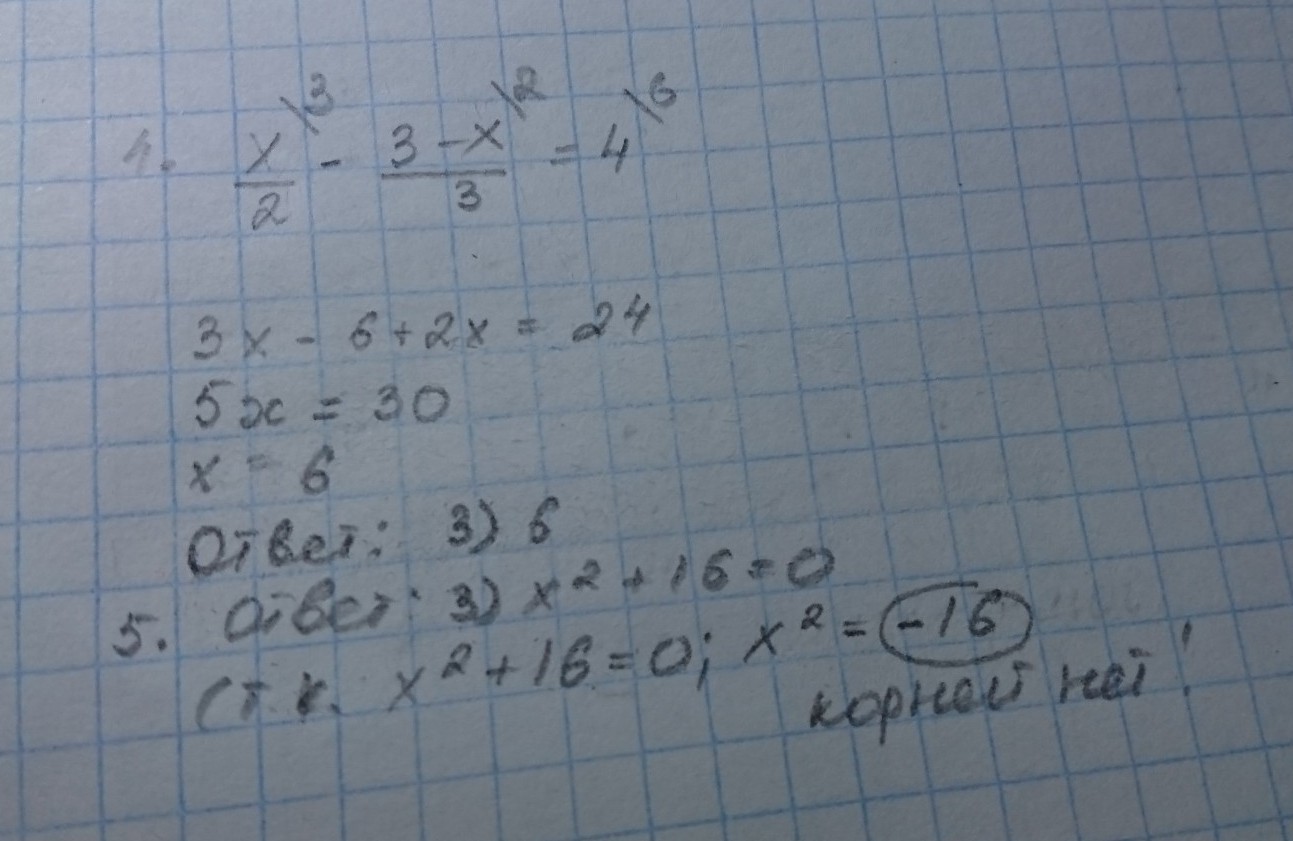 4. x/2 \3 - 3-x/3 \2 = 4 \6
3x - 6 + 2x = 24
5x = 30
x = 6
Ответ: 3) 6
5. Ответ: 3) x² + 16 = 0
(т.к. x² + 16 = 0; x² = -16
корней нет!